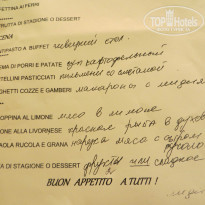 FETTINA AI FERRI
FRUTTA DI STAGIONE O DESSERT
CENA
ANTIPASTO A BUFFET шведский стол.
CREMA DI PORRI E PATATE суп картофельный
TORTELLINI PASTICCIATI пельмени со сметаной
GNOCHETTI COZZE E GAMBERI макароны с мидиями
SCALOPPINA AL LIMONE мясо в лимоне
ALLA LIVORNESE красная рыба в
RUCOLA E GRANA мясо с сыром
FRUTTA DI STAGIONE O DESSERT фрукты или сладкое
BUON APPETITO A TUTTI !
TopHotels